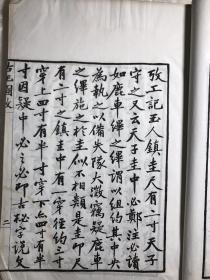 攷工記玉人鎮圭尺有二寸天子
守之又云天子圭中必鄭注必讀
如鹿車縪之縪謂以組約其中央
為執之以備失隊大澂竊疑鹿車
之縪施之於圭似不相類是圭尺
有二寸之鎮圭中有一穿徑約三寸
穿上四寸有半寸穿下亦四寸有半
寸因疑中必之必即古柲字說文
古玉圖攷
二